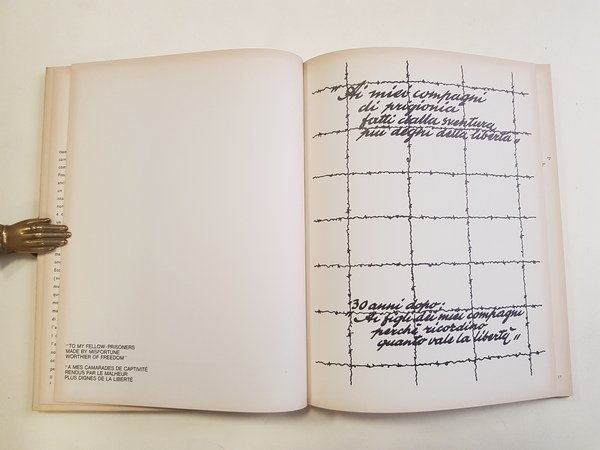 "TO MY FELLOW-PRISONERS
MADE BY MISFORTUNE
WORTHIER OF FREEDOM"
"A MES CAMARADES DE CAPTIVITÉ
RENDUS PAR LE MALHEUR
PLUS DIGNES DE LA LIBERTÉ
"Ai miei compagni
di prigionia
fatti dalla sventura
più degni della libertà"
30 anni dopo:
"Ai figli dei miei compagni
perchè ricordino
quanto vale la libertà"
17